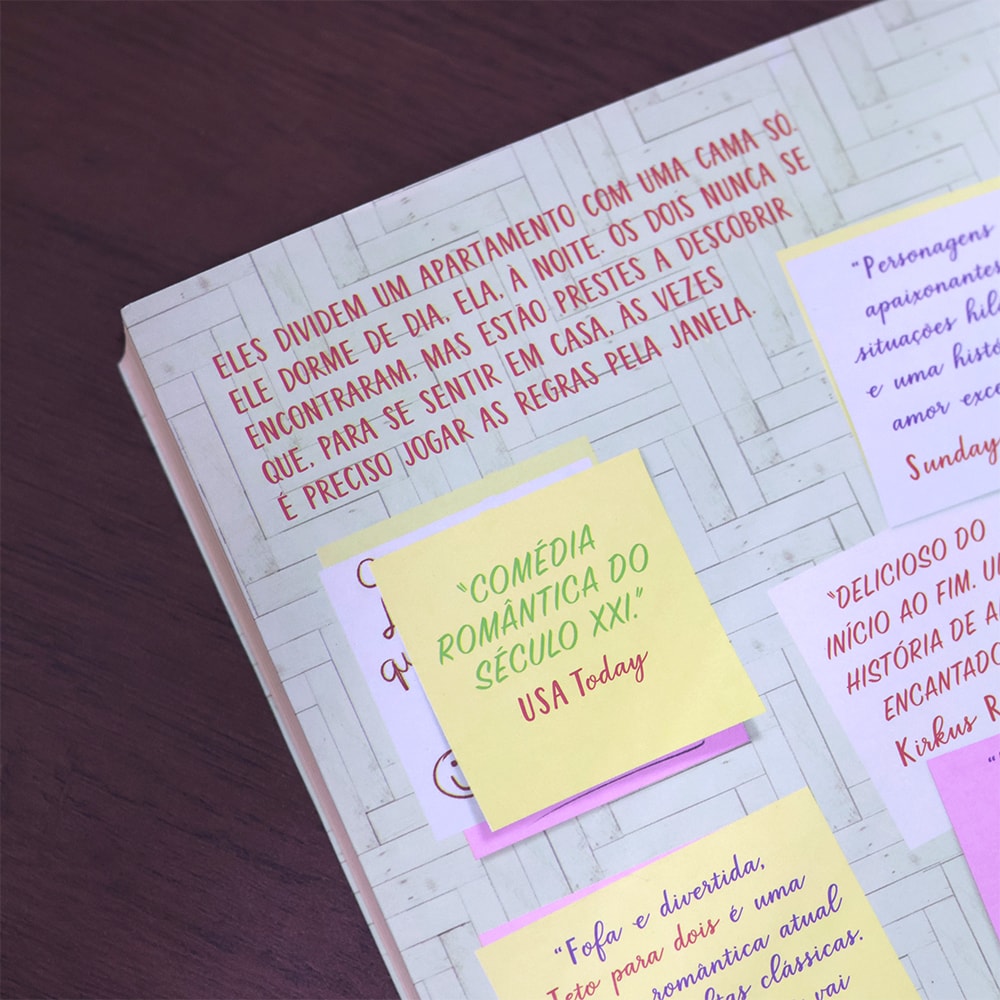 ELES DIVIDEM UM APARTAMENTO COM UMA CAMA SÓ.
ELE DORME DE DIA, ELA, À NOITE. OS DOIS NUNCA SE
ENCONTRARAM, MAS ESTÃO PRESTES A DESCOBRIR
QUE, PARA SE SENTIR EM CASA, ÀS VEZES
É PRECISO JOGAR AS REGRAS PELA JANELA.
"Personagens
apaixonantes
situações
e uma
amor
Sunday
"COMÉDIA
ROMÂNTICA DO
SÉCULO XXI."
USA Today
"DELICIOSO DO
INÍCIO AO FIM.
HISTÓRIA DE
Kirkus
"Fofa e divertida,
Teto para dois é uma
romântica atual
clássicas.
vai